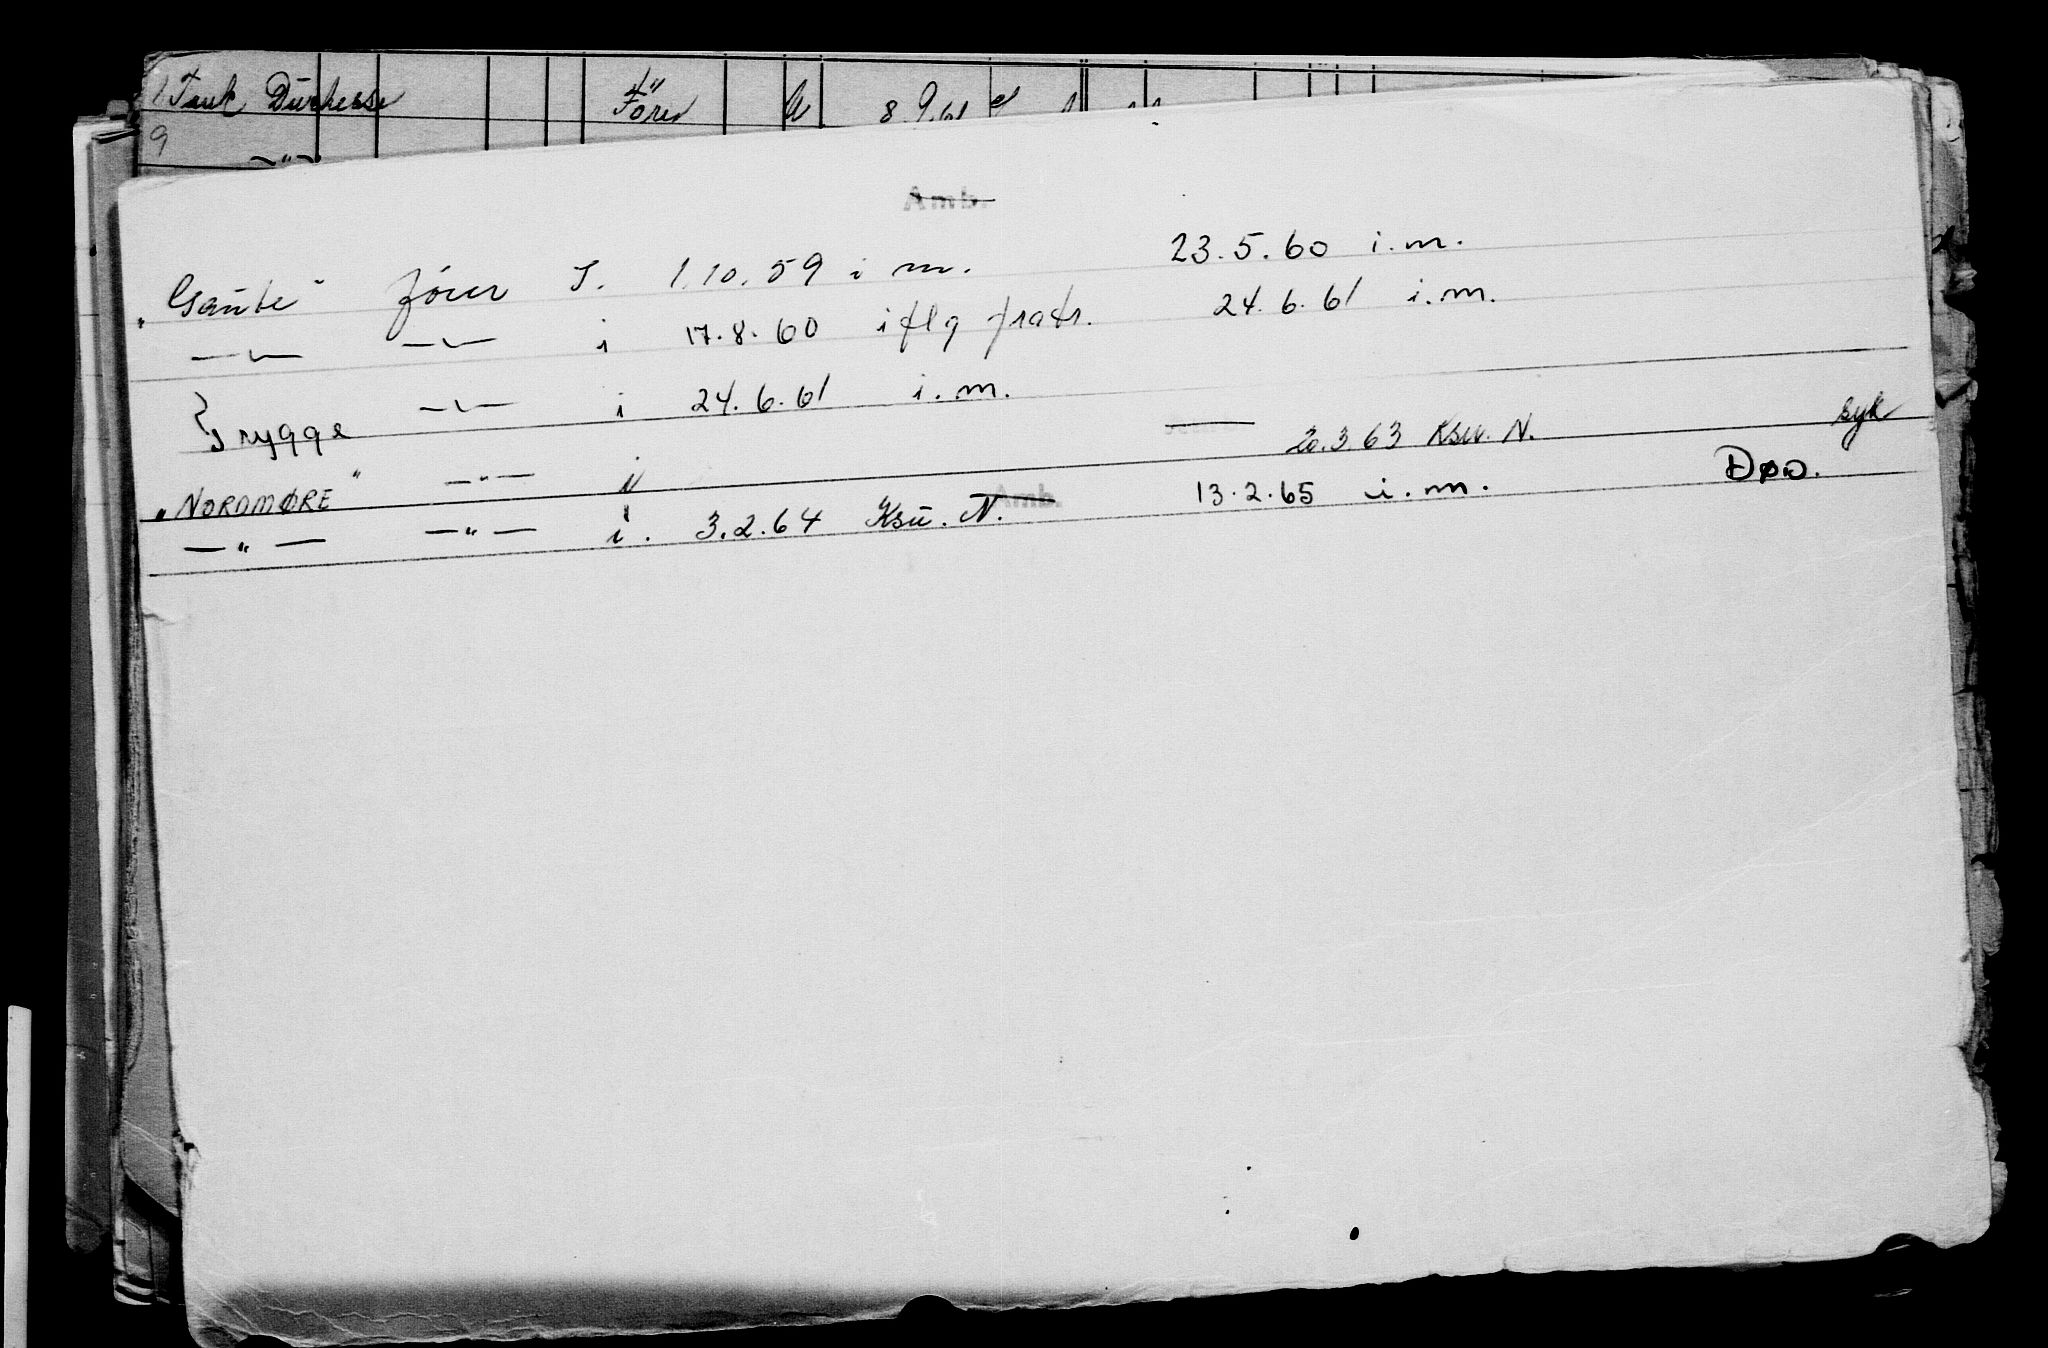 Tank Duchesse Förer 8.9.61
9 — " —
Amb.
"Gaute" fører I. 1.10.59 i m. 23.5.60 i.m.
— " — — " — i 17.8.60 iflg fratr. 24.6.61 i.m.
Trygge — " — i 24.6.61 i.m.
20.3.63 Ksu. N. syk
"NORDMØRE" — " — i
— " — — " — i. 3.2.64 Ksu. N. Amb. 13.2.65 i.m. DØD.